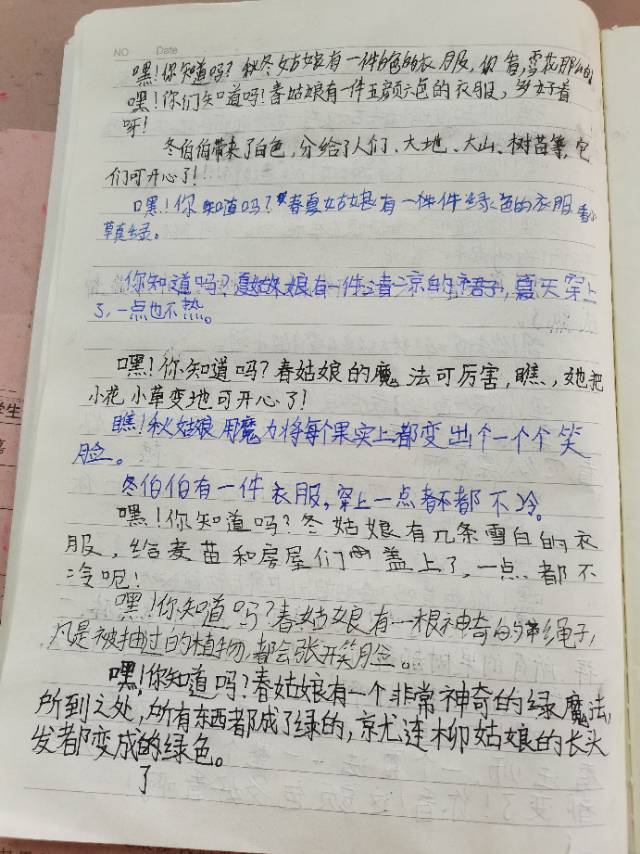 NO Date
嘿!你知道吗?秋冬姑娘有一件白色的衣服,你看,雪花那
嘿!你们知道吗!春姑娘有一件五颜六色的衣服,多好看
呀!
冬伯伯带来了白色,分给了人们、大地、大山、树苗等,它
们可开心了!
嘿!你知道吗?春夏姑娘有一件件绿色的衣服看小
草真绿。
你知道吗?夏姑娘有一件清凉的裙子,夏天穿上
了,一点也不热。
嘿!你知道吗?春姑娘的魔法可厉害,瞧,她把
小花小草变地可开心了!
瞧!秋姑娘用魔力将每个果实上都变出个一个个笑
脸。
冬伯伯有一件衣服,穿上一点都不冷。
嘿!你知道吗?冬姑娘有几条雪白的衣
服,给麦苗和房屋们盖上了,一点都不
冷呢!
嘿!你知道吗?春姑娘有一根神奇的绳子,
凡是被抽过的植物,都会张开笑脸。
嘿!你知道吗?春姑娘有一个非常神奇的绿魔法,
所到之处,所有东西都成了绿的,京尤连柳姑娘的长头
发都变成了的绿色。
学生